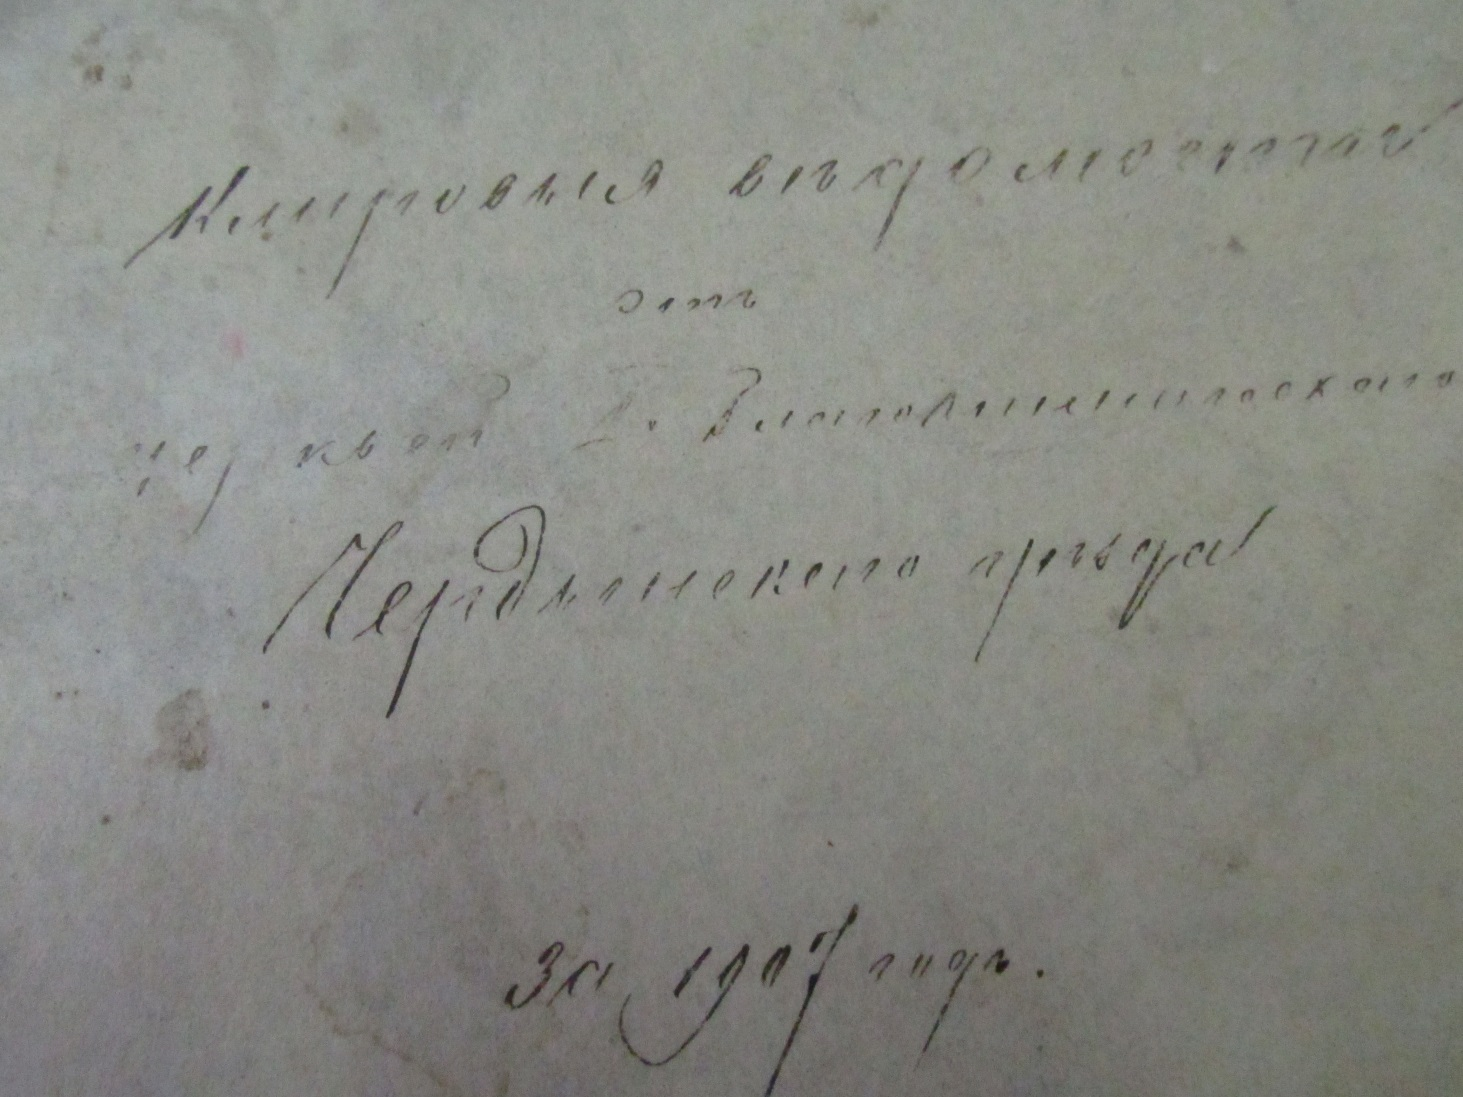 Клировыя вѣдомости
отъ
церквей 1. Благочинническаго
Чердынскаго уѣзда
за 1907 годъ.